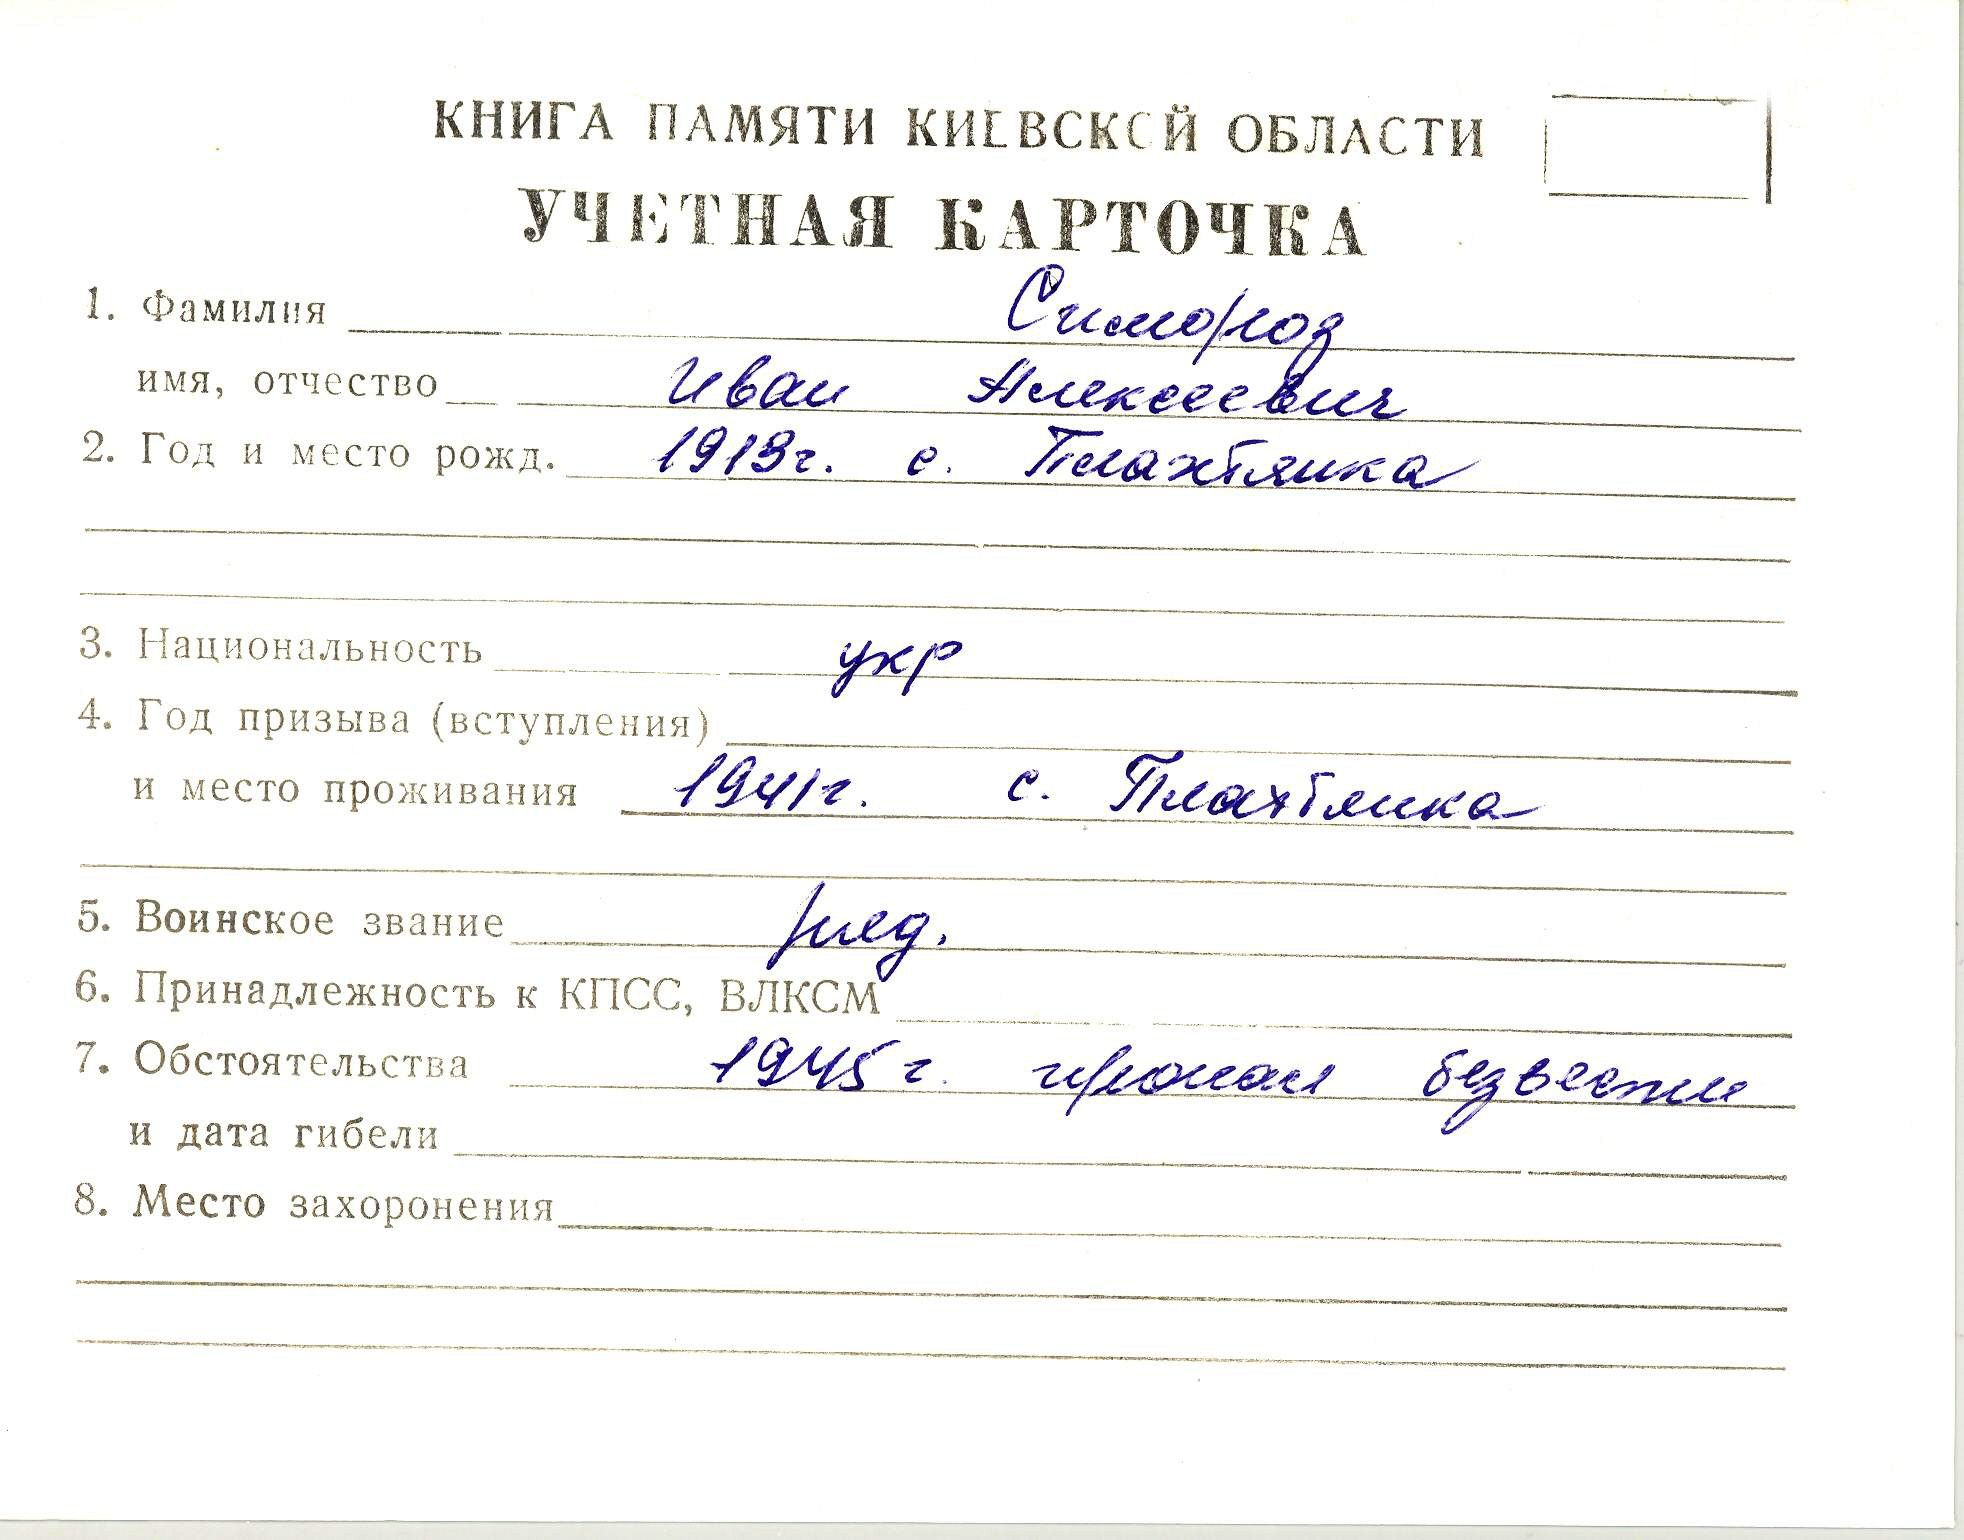 КНИГА ПАМЯТИ КИЕВСКОЙ ОБЛАСТИ
УЧЕТНАЯ КАРТОЧКА
1. Фамилия Симороз
имя, отчество Иван Алексеевич
2. Год и место рожд. 1913г. с. Плахтянка
3. Национальность укр
4. Год призыва (вступления)
и место проживания 1941г. с. Плахтянка
5. Воинское звание ряд.
6. Принадлежность к КПСС, ВЛКСМ
7. Обстоятельства 1945г. пропал безвести
и дата гибели
8. Место захоронения